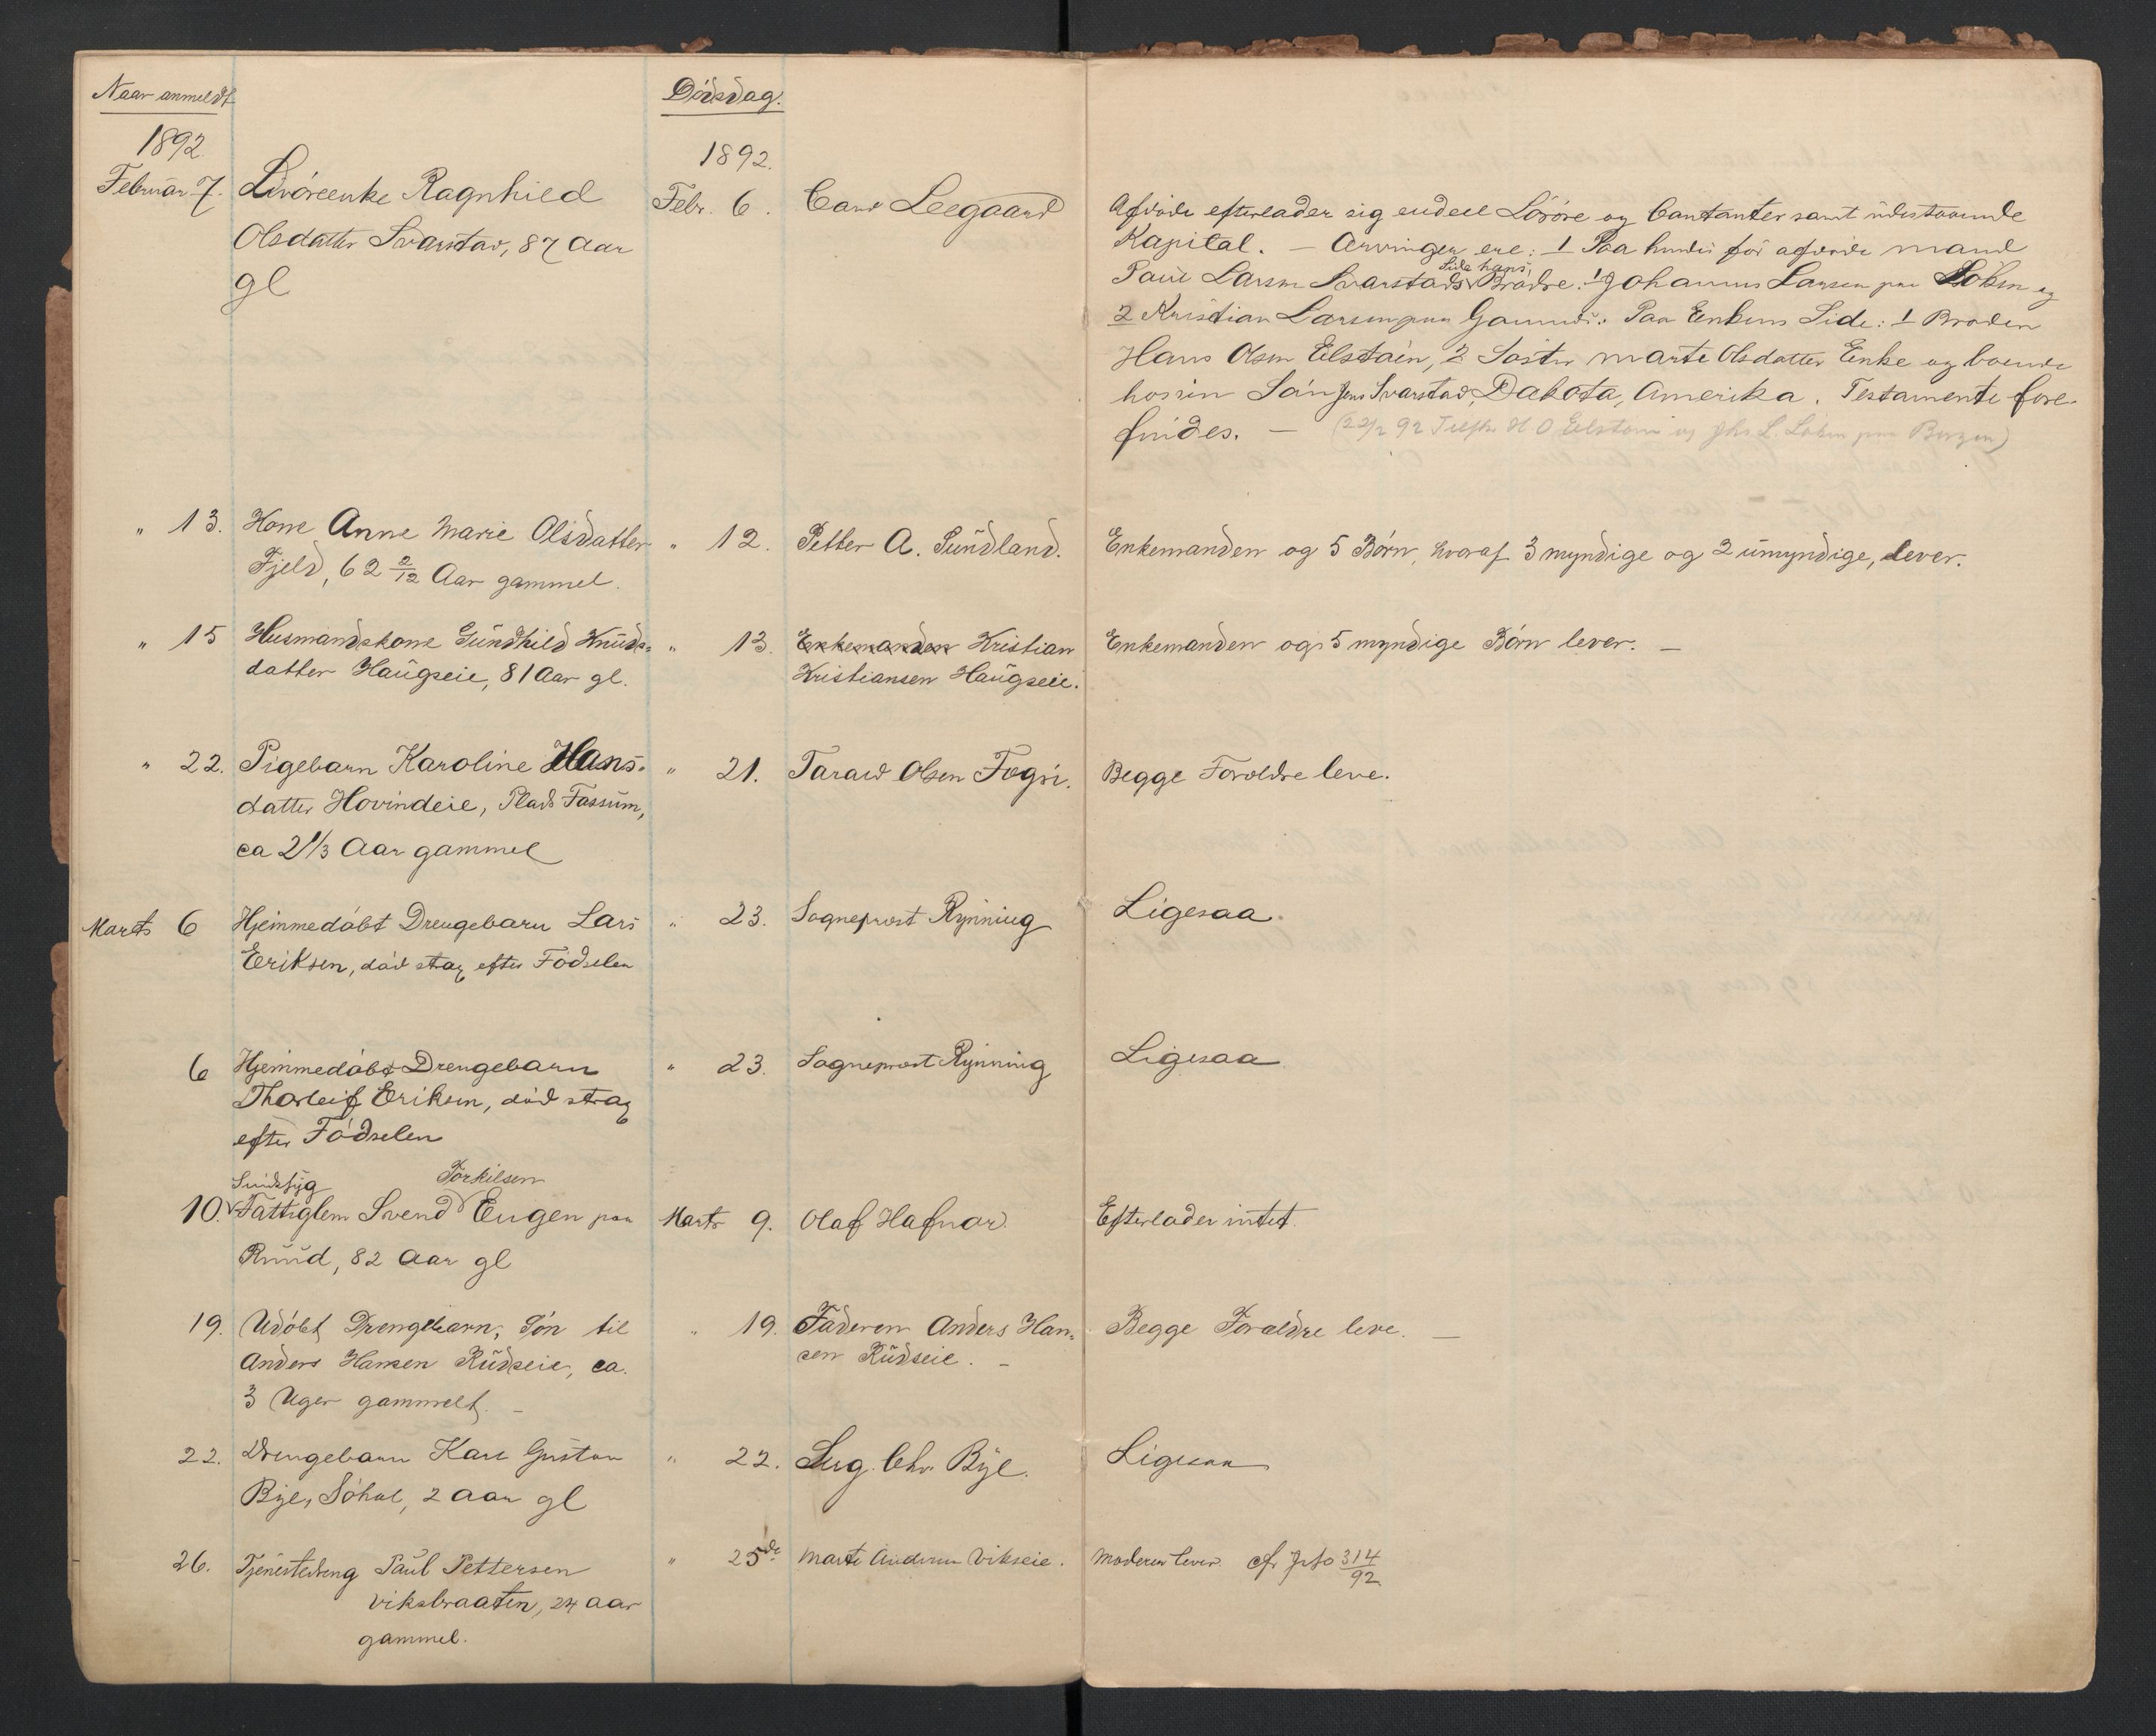 Naar anmeldt
Dödsdag.
1892.
1892.
Februar 7.
Livöreenke Ragnhild
Olsdatter Svarstad, 87 Aar
gl
Febr. 6.
Leegaard
Afdöde efterlader sig endeel Lösöre og Contanter samt udestaaende
Kapital. — Arvinger ere: 1 Paa hendes för afdöde mand
Side hans
Paul Larsen Svarstads Brödre: 1 Johannes Larsen paa Löken og
2 Kristian Larsen paa Paa Enkens Side: 1 Broderen
Hans Olsen Elstøin, 2 Söster Marte Olsdatter Enke og boende
hos sin Sön Jens Svarstad, Dakota, Amerika. Testamente fore-
findes. —
" 13.
Kone Anne Marie Olsdatter
Fjeld, 62 2/12 Aar gammel.
" 12.
Petter A. Sundland.
Enkemanden og 5 Børn, hvoraf 3 myndige og 2 umyndige, lever.
" 15
Husmandskone Gundhild Knuds-
datter Haugseie, 81 Aar gl.
" 13.
Enkemanden Kristian
Kristiansen Haugseie.
Enkemanden og 5 myndige Börn lever. —
" 22.
Pigebarn Karoline Hans-
datter Hovindeie, Plads Fassum,
ca 2 1/3 Aar gammel
" 21.
Olsen
Begge Foræl​dre leve.
Marts 6
Hjemmedöbt Drengebarn Lars
Eriksen, död strax efter Födselen
" 23.
Sogneprost Rynning
Ligesaa.
6
Hjemmedöbt Drengebarn
Thorleif Eriksen, död strax
efter Födselen
" 23.
Sogneprost Rynning
Ligesaa
Sindssyg Torkilsen
10.
Fattiglem Svend Eugen paa
Ruud, 82 Aar gl
Marts 9.
Olaf Hafnor.
Efterlader intet.
19.
Udöbt Drengebarn, Sön til
Anders Hansen Rudseie, ca.
3 Uger gammelt. –
" 19.
Faderen Anders Han-
sen Rudseie. –
Begge Forældre leve. —
22.
Drengebarn Karl Gustav
Bye, Söhol, 2 Aar gl
" 22.
Chr. Bye.
Ligesaa
26.
Tjenestedreng Paul Pettersen
Viksbraaten, 24 Aar
gammel.
" 25de
Marte Andersen Vikseie.
Moderen lever. cfr 314/92